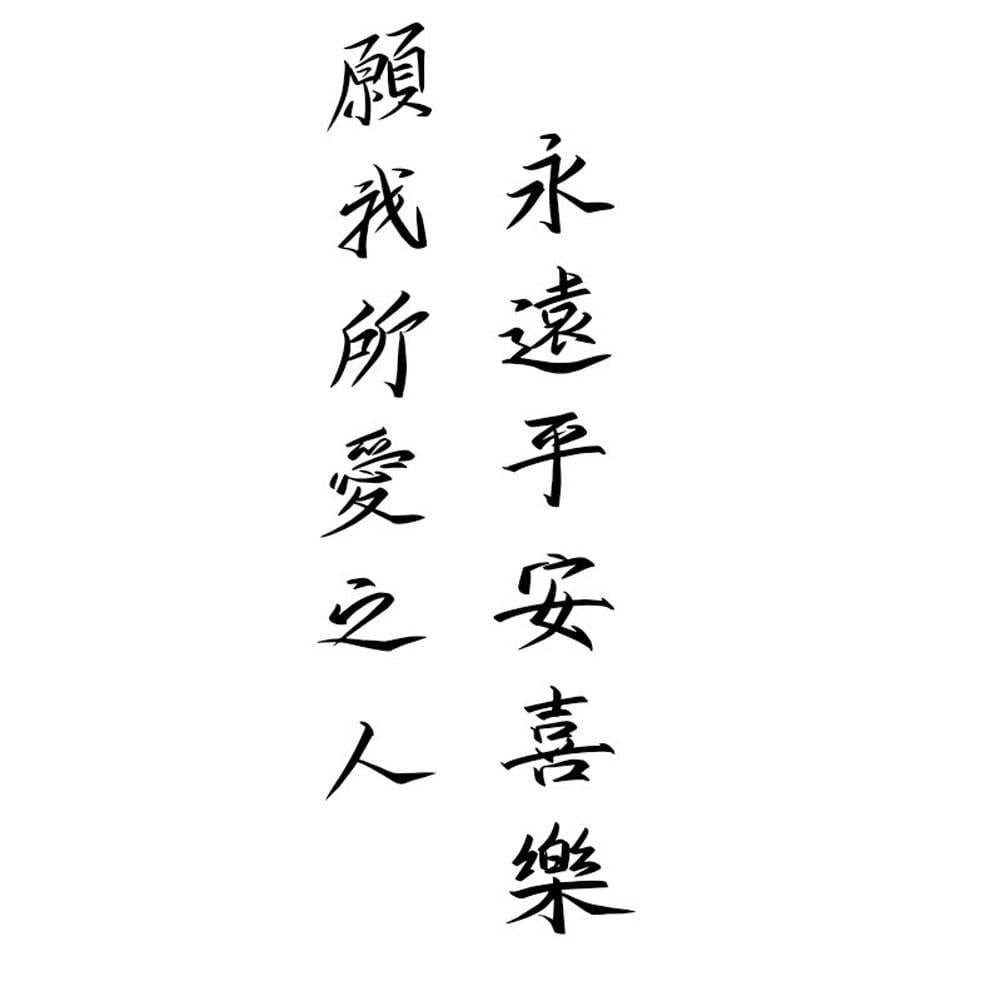 願我所愛之人
永遠平安喜樂